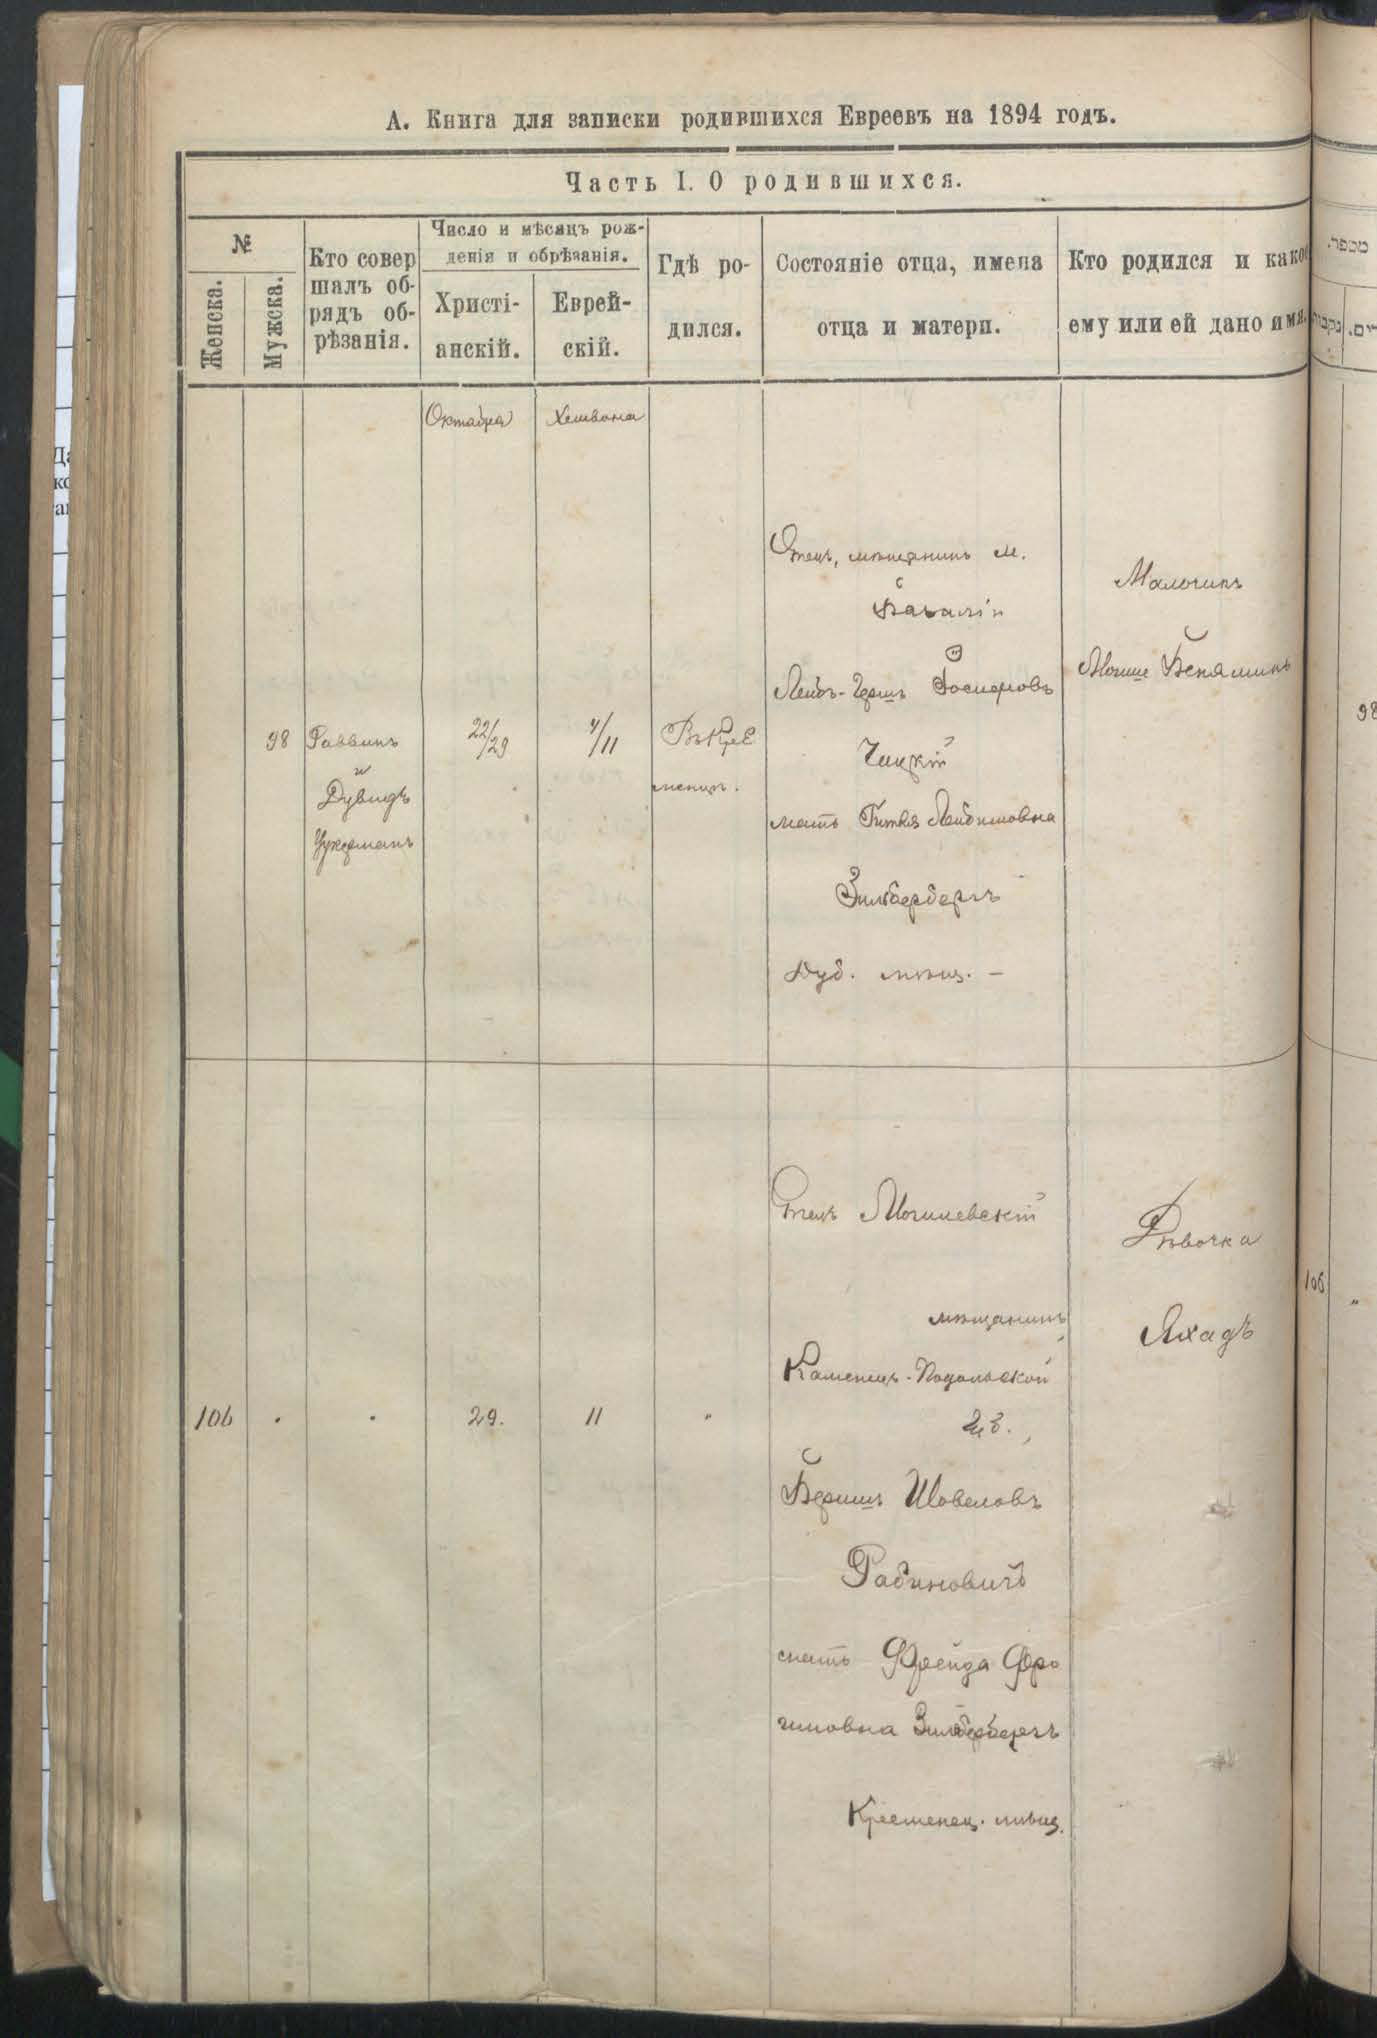 А. Книга для записки родившихся Евреевъ на 1894 годъ.
Часть I. О родившихся.
№
Женска.
Мужска.
Кто совер
шалъ об-
рядъ об-
рѣзанія.
Число и мѣсяцъ рож-
денія и обрѣзанія.
Христі-
анскій.
Еврей-
скій.
Гдѣ ро-
дился.
Состояніе отца, имена
отца и матери.
Кто родился и какое
ему или ей дано имя.
Октября
Хешвона
98
Раввинъ
и
Дувидъ
Цукерманъ
22/29
4/11
Въ Кре
менцѣ.
Отецъ, мѣщанинъ м.
Лейбъ-Гершъ Іосифовъ
Чацкій
мать Гитля Лейбишовна
Зильбербергъ
Дуб. мѣщ. —
Мальчикъ
Мойше Бенямин
106
.
.
29.
11
"
Отецъ Могилевскій
мѣщанинъ
Каменецъ-Подольской
губ.,
Беришъ Шовеловъ
Рабиновичъ
мать Фрейда Фро
имовна Зильбербергъ
Кременец. мѣщ.
Дѣвочка
Яхадъ
מספר.
98
106
"